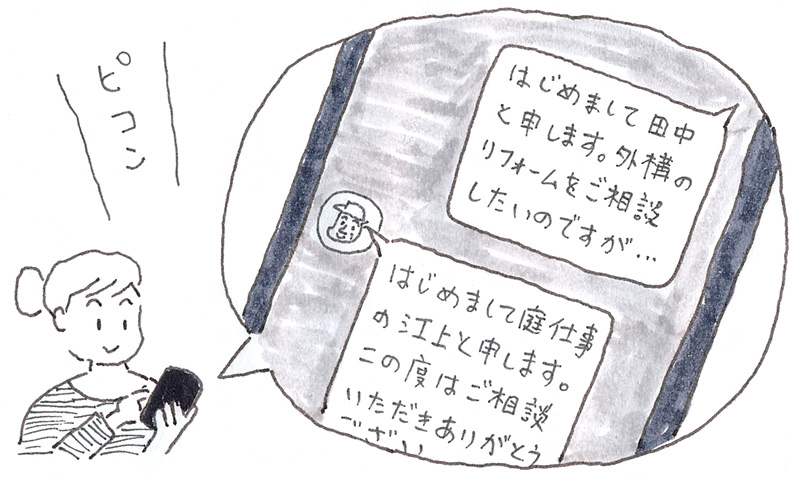 ピコン
はじめまして田中
と申します。外構の
リフォームをご相談
したいのですが…
はじめまして庭仕事
の江上と申します。
この度はご相談
いただきありがとう
ござい